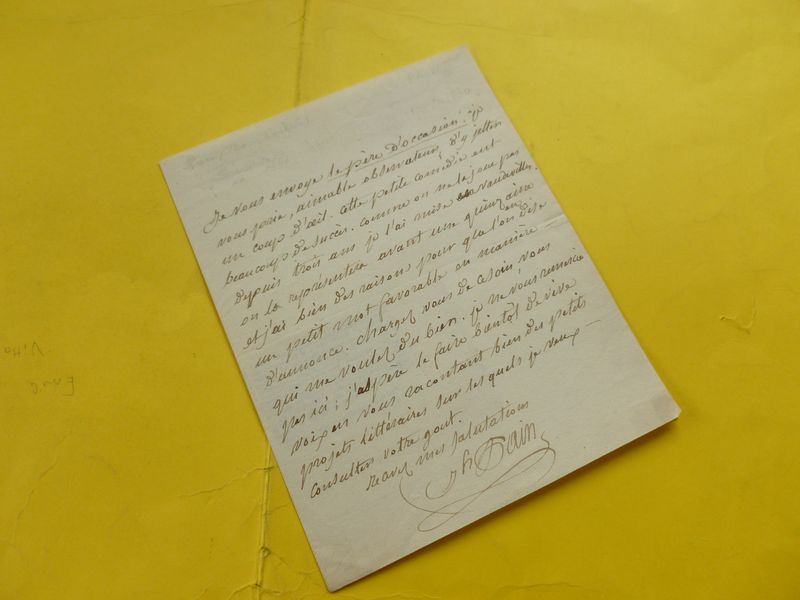 Je vous envoye le père d'occasion. je
vous prie, aimable observateur, d'y jetter
un coup d'œil. cette petite comédie eut
beaucoup de succès. comme on ne la joue pas
depuis trois ans je l'ai mise en vaudeville.
on la représentera avant une quinzaine
et j'ai bien des raison pour que l'on en dise
un petit mot favorable en manière
d'annonce. chargez vous de ce soin, vous
qui me voulez du bien. je ne vous remercie
pas ici; j'espère le faire bientôt de vive
voix en vous racontant bien des petits
projets littéraires sur les quels je veux
consulter votre gout.
recevez mes salutations
Jh Pain